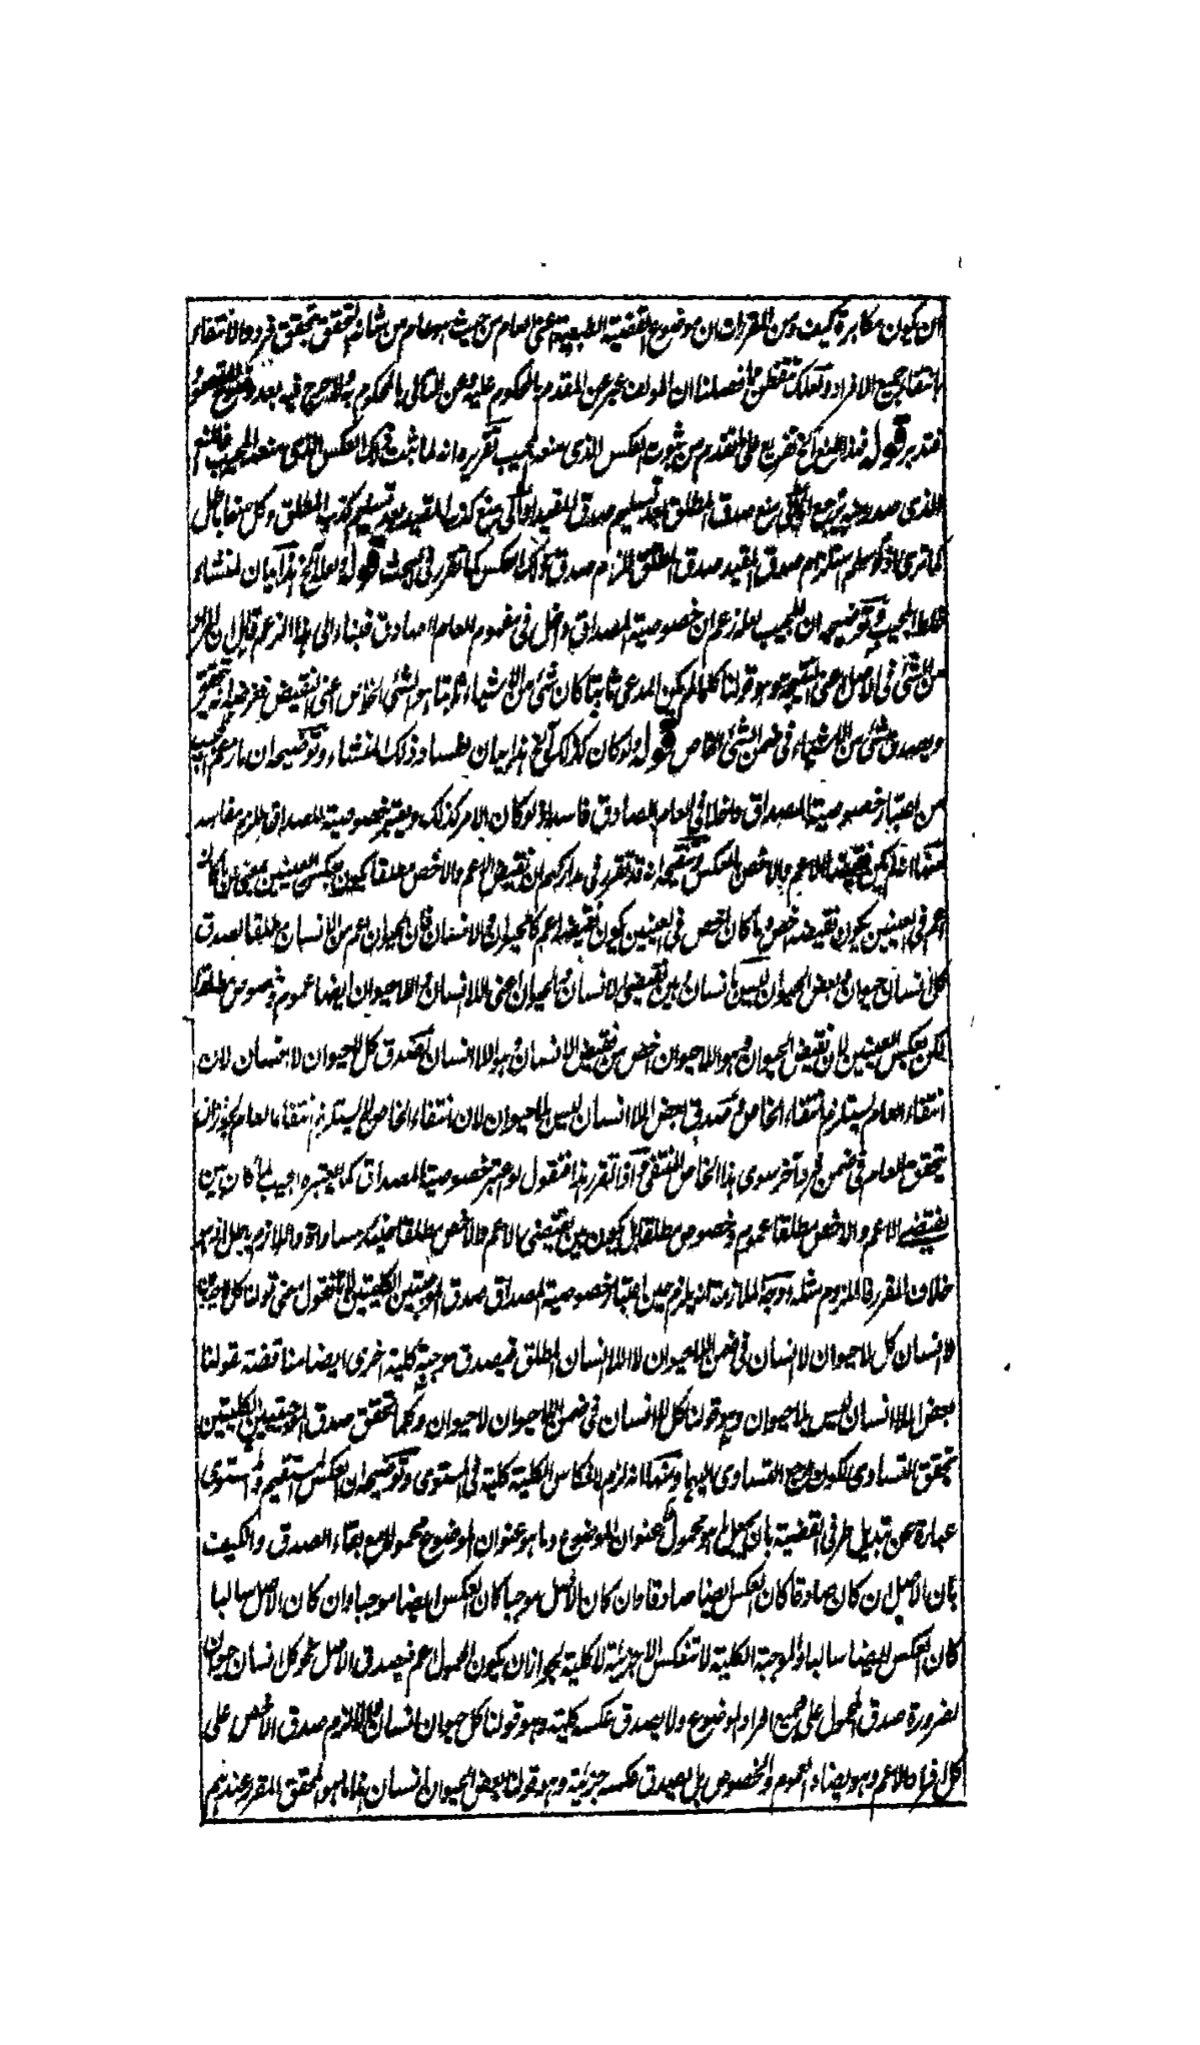 ان يكون مكابرة كيف ومن المقررات ان موضوع القضية الطبعية اعنى العام من حيث هو عام من شانه التحقق بتحقق فرد والانتفاء
بانتفاء جميع الافراد ولعلك تتفطن مما فصلنا ان المولف عبر عن المقدم بالمحكوم عليه وعن التالى بالمحكوم به ولا حرج فيه بعد وضوح المقصود
فتدبر قوله فهذا المنع الخ تفريع على ما تقدم من ثبوت العكس الذى منعه المجيب تقريره انه لما ثبت ذلك العكس الذى منعه المجيب فالمنع
الذى صدر منه يرجع اما الى منع صدق المطلق بعد تسليم صدق المقيد او الى منع كذب المقيد بعد تسليم كذب المطلق وكل منهما باطل
كما ترى اذ لو سلم استلزام صدق المقيد صدق المطلق لزم صدق ذلك العكس كما تقرر فى المبحث قوله ولعله الخ هذا بيان لمنشاء
غلط المجيب وتوضيحه ان المجيب لعله زعم ان خصوصية المصداق داخل فى مفهوم العام الصادق فبناء على هذا الزعم قال ان المراد
من الشئ فى الاصل اعنى النتيجة وهو قولنا كلما لم يكن المدعى ثابتا كان شئ من الاشياء ثابتا هو الشئ الخاص اعنى النقيض
ويصدق شئ من الاشياء فى ضمن الشئ الخاص قوله ولو كان كذلك الخ هذا بيان لفساد ذلك المنشاء وتوضيحه ان ما زعم المجيب
من اعتبار خصوصية المصداق داخلا فى العام الصادق فاسد اذ لو كان الامر كذلك ويعتبر خصوصية المصداق لزم مفاسد
منها ان لا يكون نقيضا الاعم والاخص بالعكس وتنقيحه انه قد تقرر فى مداركهم ان نقيض الاعم والاخص مطلقا يكون بعكس العينين يعنى ان ما كان
اعم فى العينين يكون نقيضه اخص وما كان اخص فى العينين يكون نقيضه اعم كالحيوان والانسان فان الحيوان اعم من الانسان مطلقا لصدق
كل انسان حيوان وبعض الحيوان ليس بانسان وبين نقيضى الانسان والحيوان اعنى اللاانسان واللاحيوان ايضا عموم وخصوص مطلقا
لكن بعكس العينين فان نقيض الحيوان وهو اللاحيوان اخص من نقيض الانسان وهو اللاانسان لصدق كل لاحيوان لاانسان لان
انتفاء العام يستلزم انتفاء الخاص وصدق بعض اللاانسان ليس بلاحيوان لان انتفاء الخاص لا يستلزم انتفاء العام لجواز ان
يتحقق العام فى ضمن فرد آخر سوى هذا الخاص المنتفى واذا تقرر هذا فنقول لو اعتبر خصوصية المصداق كما يعتبره المجيب لما كان بين
نقيضى الاعم والاخص مطلقا عموم وخصوص مطلقا بل يكون بين نقيضى الاعم والاخص مطلقا حينئذ مساواة واللازم باطل لانه
خلاف المقرر فالملزوم مثله ووجه الملازمة انه يلزم حين اعتبار خصوصية المصداق صدق الموجبتين الكليتين لانا نقول معنى قولنا كل لاحيوان
لاانسان كل لاحيوان لاانسان فى ضمن اللاحيوان لا اللاانسان المطلق فيصدق موجبة كلية اخرى ايضا مناقضة لقولنا
بعض اللاانسان ليس بلاحيوان وهو قولنا كل لاانسان فى ضمن اللاحيوان لاحيوان وكلما تحقق صدق الموجبتين الكليتين
تحقق التساوى لكون مرجع التساوى اليها ومنها انه لزم انعكاس الكلية كلية فى المستوى وتوضيحه ان العكس المستقيم والمستوى
عبارة عن تبديل طرفى القضية بان يجعل ما هو محمول عنوان الموضوع وما هو عنوان الموضوع محمولا مع بقاء الصدق والكيف
بان الاصل ان كان صادقا كان العكس ايضا صادقا وان كان الاصل موجبا كان العكس ايضا موجبا وان كان الاصل سالبا
كان العكس ايضا سالبا والموجبة الكلية لا تنعكس الا جزئية لا كلية لجواز ان يكون المحمول اعم فيصدق الاصل نحو كل انسان حيوان
لضرورة صدق المحمول على جميع افراد الموضوع ولا يصدق عكسه كلية وهو قولنا كل حيوان انسان والا لزم صدق الاخص على
كل افراد الاعم وهو يضاد العموم والخصوص بل يصدق عكسه جزئية وهو قولنا بعض الحيوان انسان هذا ما هو المحقق المقرر عندهم